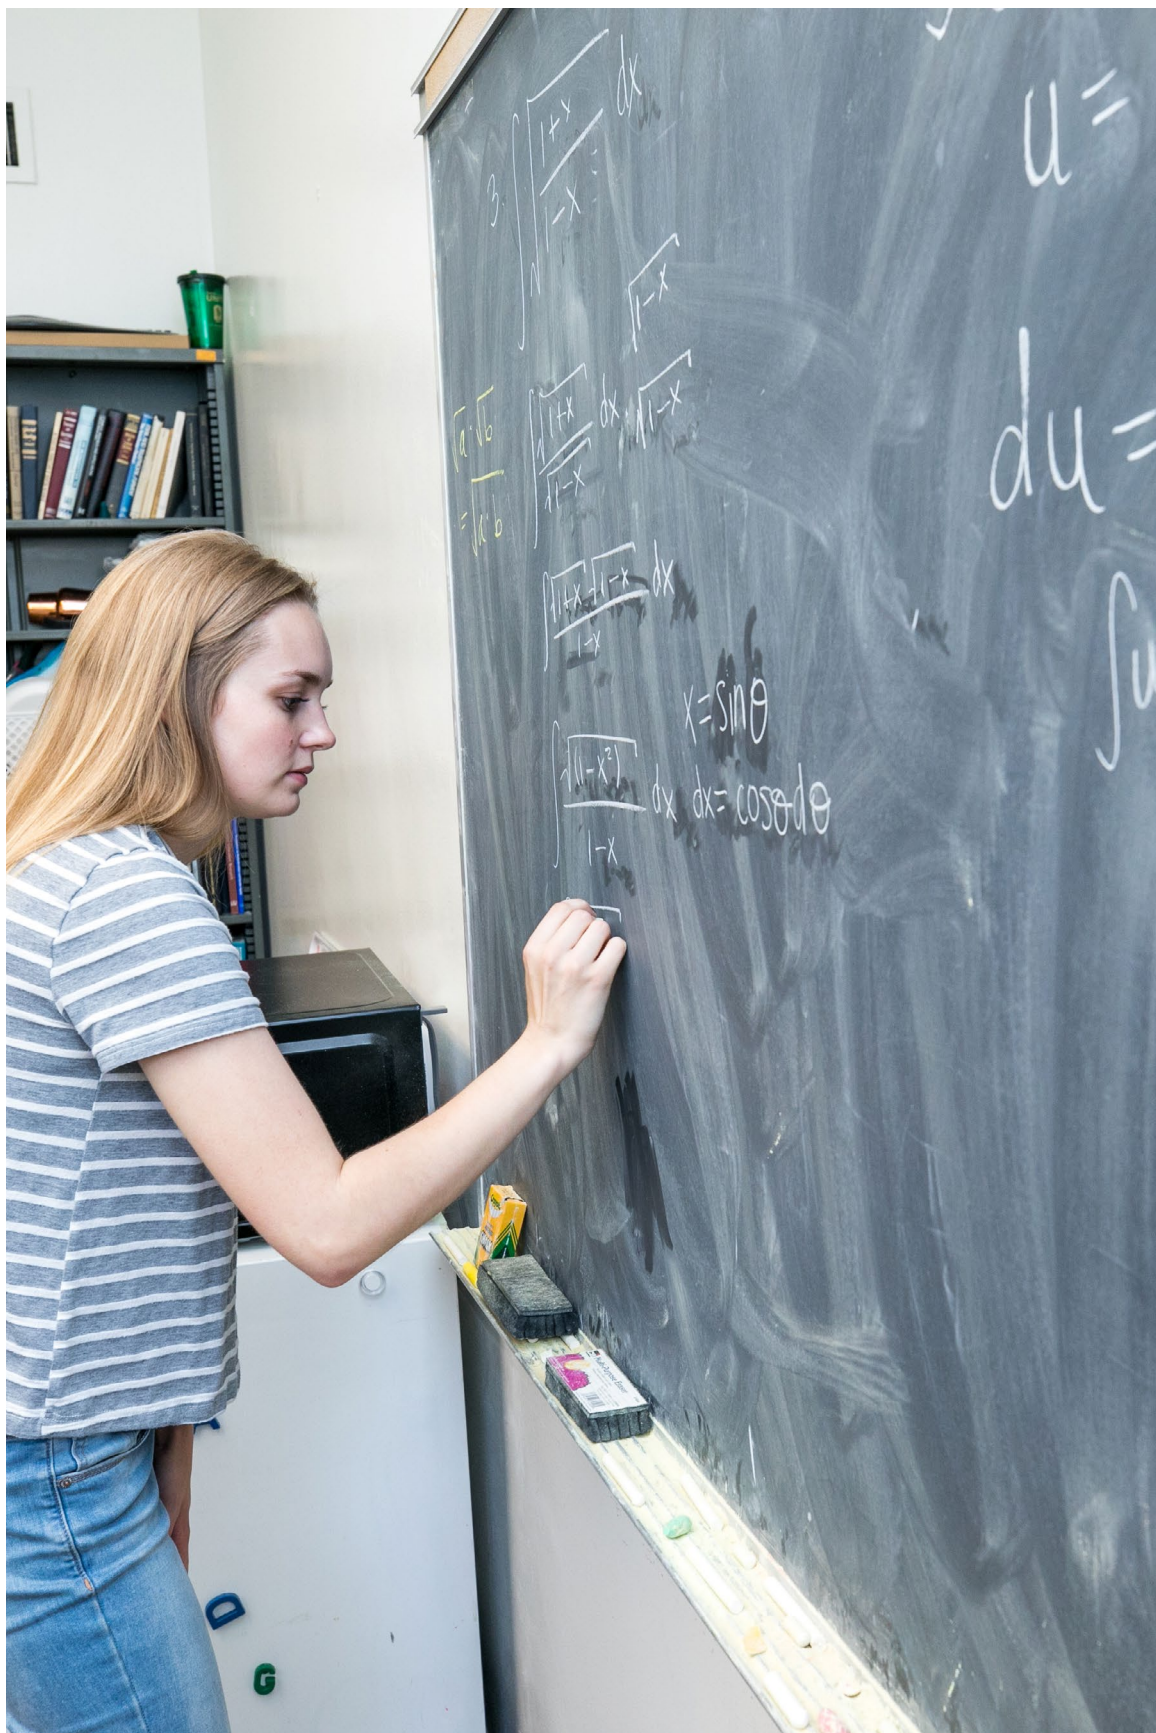 3. ∫√((1+x)/(1-x)) dx
√(1-x)
√a·√b
=√(a·b)
∫ √(1+x)/√(1-x) dx · √(1-x)
∫ (√(1+x)·√(1-x))/(1-x) dx
x=sinθ
∫ √(1-x²)/(1-x) dx
dx=cosθdθ
u=
du=
∫u
D
G